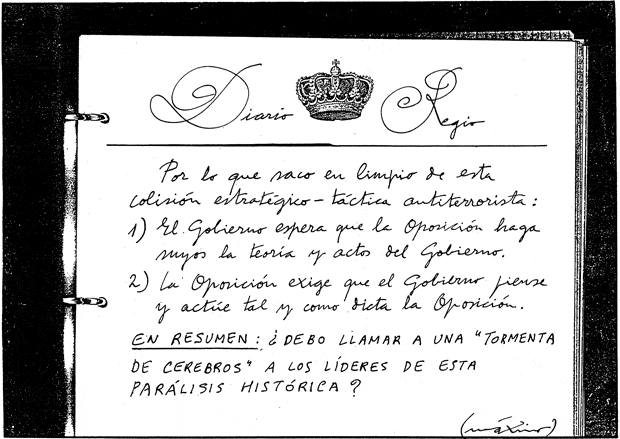 Diario Regio
Por lo que saco en limpio de esta
colisión estratégico-táctica antiterrorista:
1) El Gobierno espera que la Oposición haga
suyos la teoría y actos del Gobierno.
2) La Oposición exige que el Gobierno piense
y actúe tal y como dicta la Oposición.
EN RESUMEN: ¿DEBO LLAMAR A UNA "TORMENTA
DE CEREBROS" A LOS LÍDERES DE ESTA
PARÁLISIS HISTÓRICA?
(máximo)